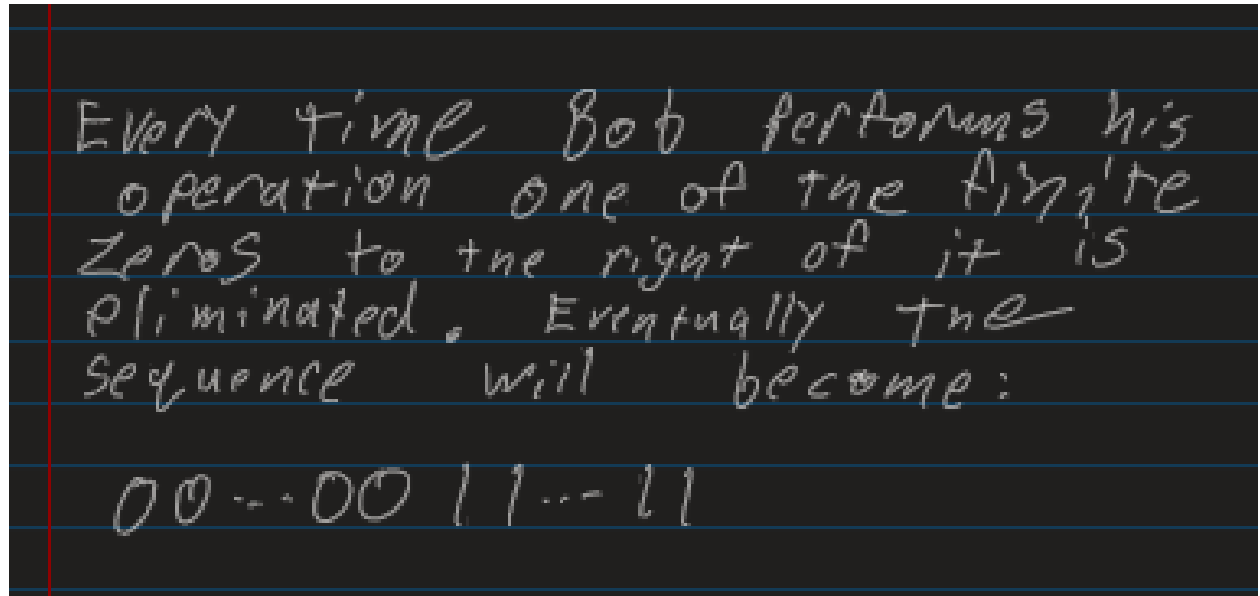 Every time Bob performs his
operation one of the finite
zeros to the right of it is
eliminated. Eventually the
sequence will become:
00...00 11...11